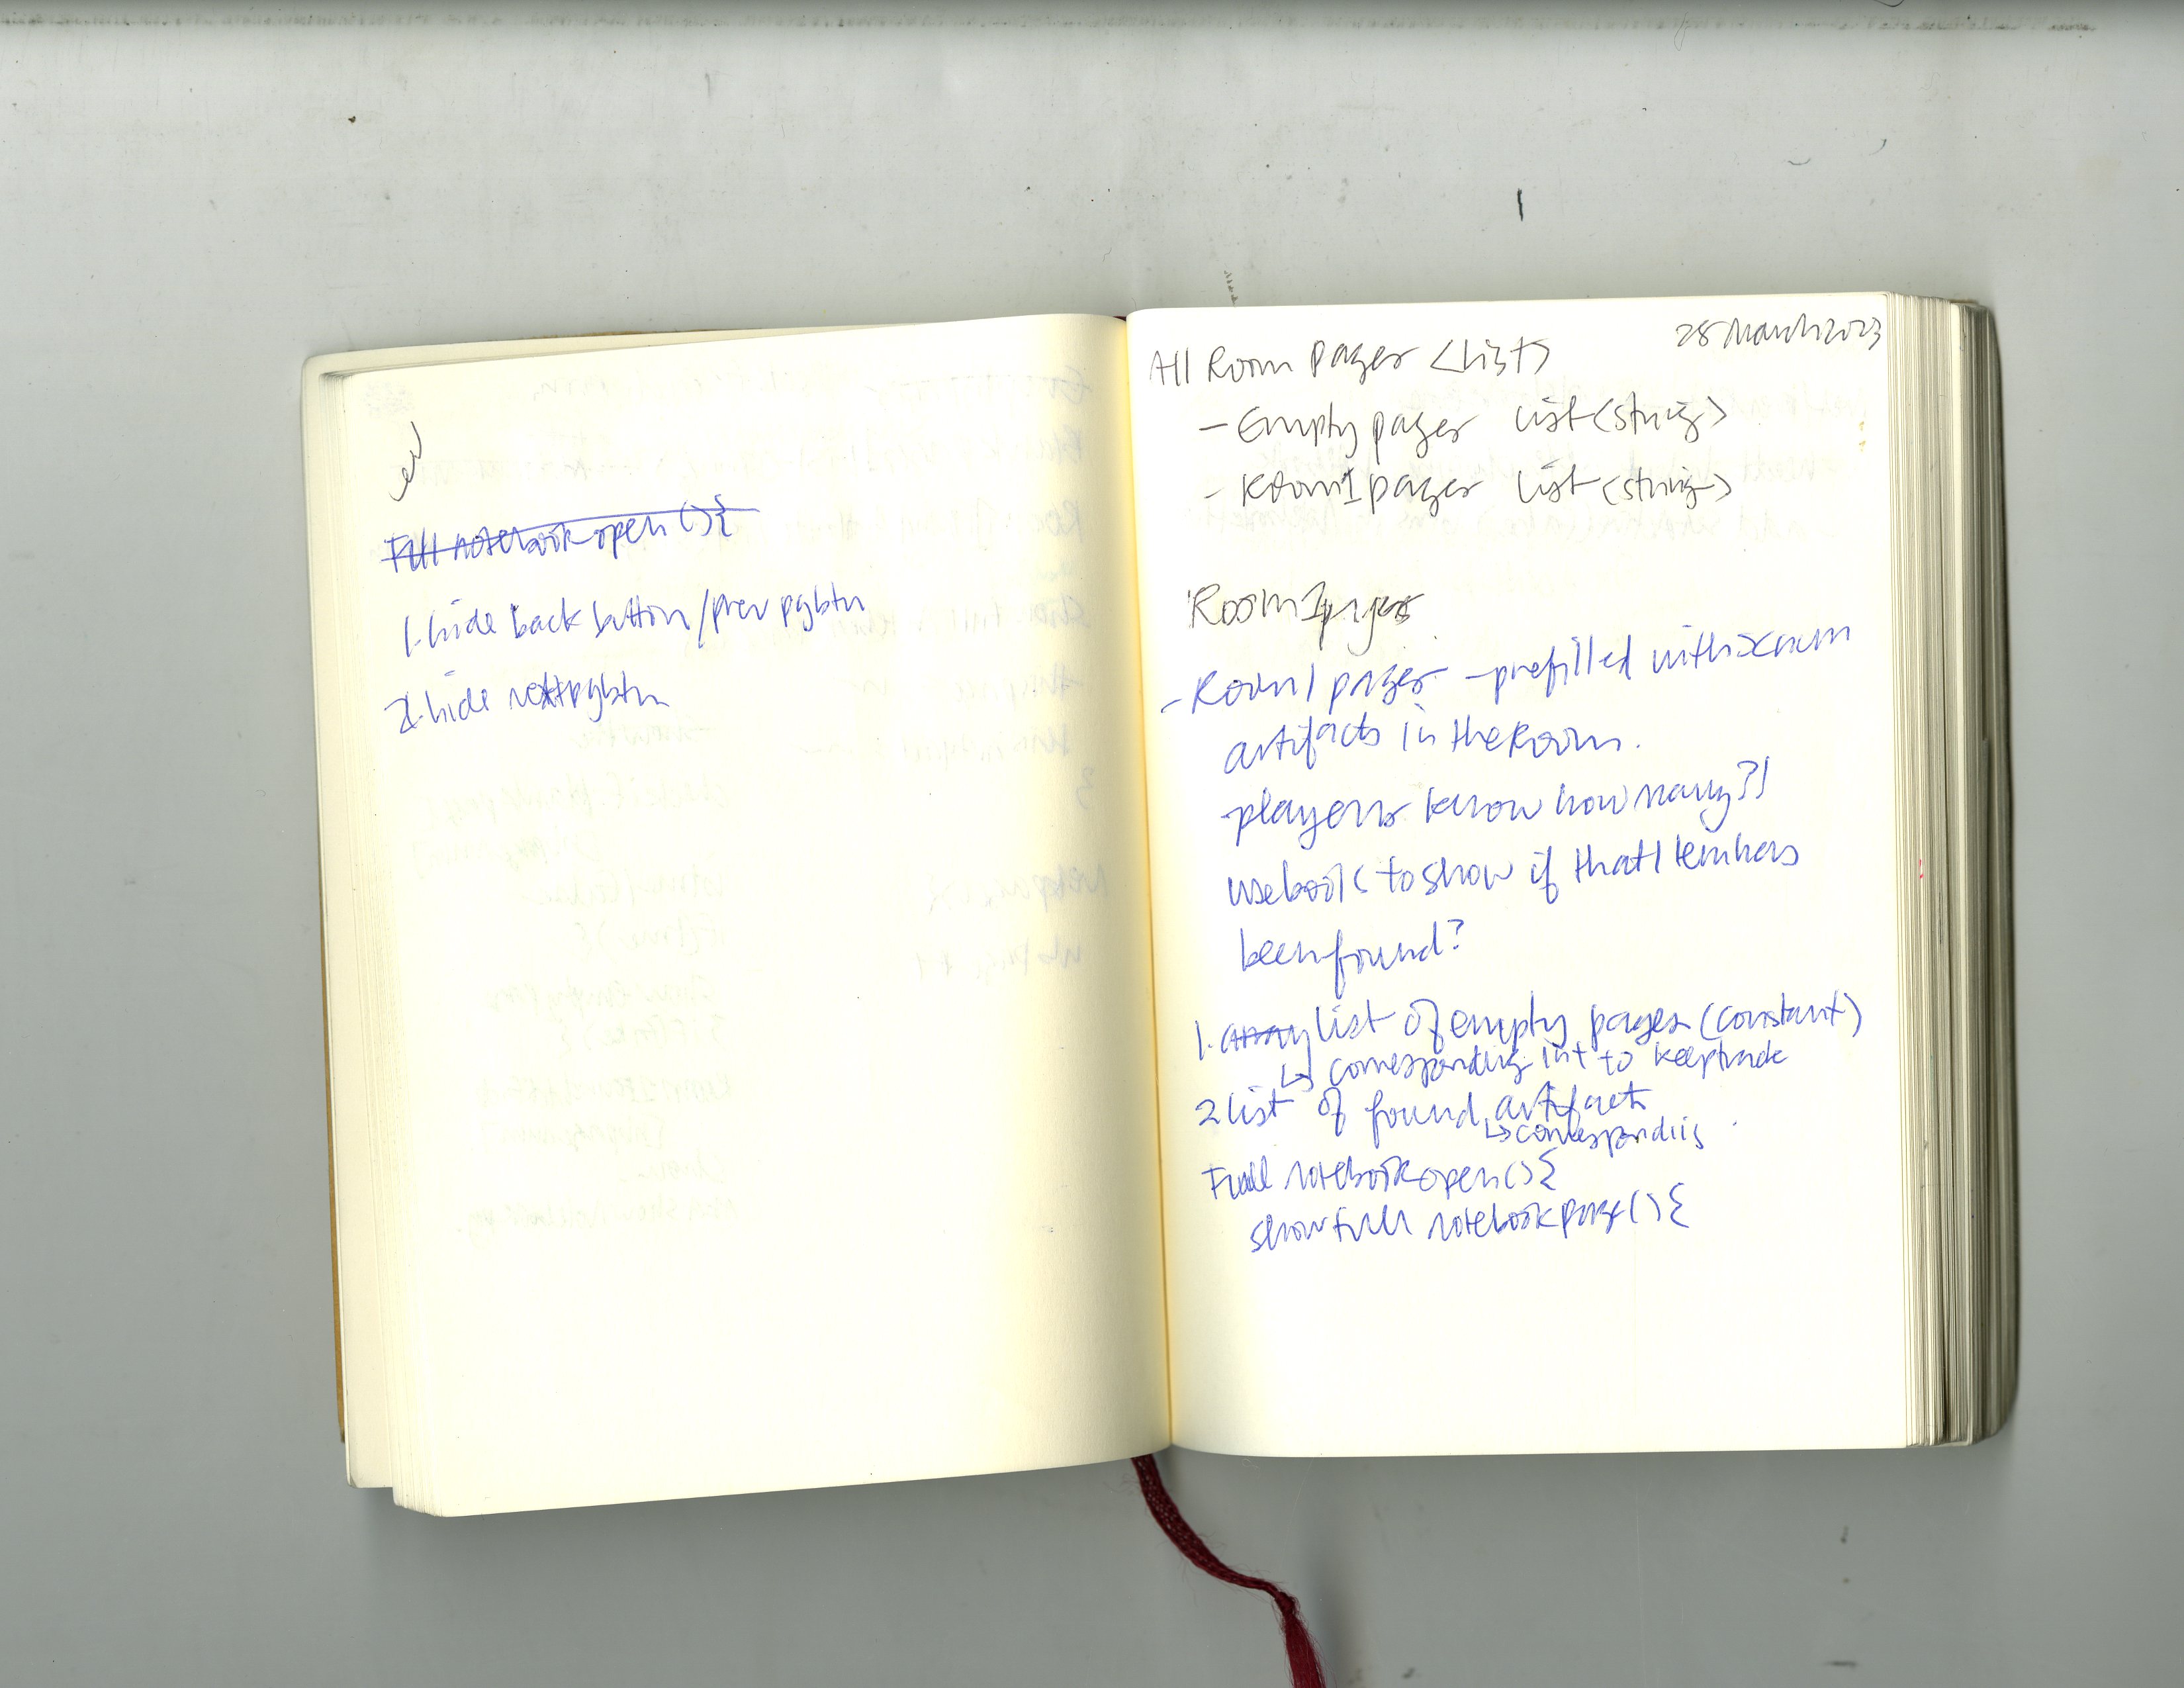 Full notebook open(){
1. hide back button/prev pgbtn
2. hide nextpgbtn
28 March 2023
All Room Pages <List>
- Empty pages List<string>
- Room1 pages List<string>
Room1pages
- Room1 pages - prefilled with x num
artifacts in the Room.
players know how many?!
use bools to show if that item has
been found?
1. array list of empty pages (constant)
↳ corresponding int to keep track
2 list of found artifacts
↳ corresponding
Full notebook open(){
show full notebook page(){